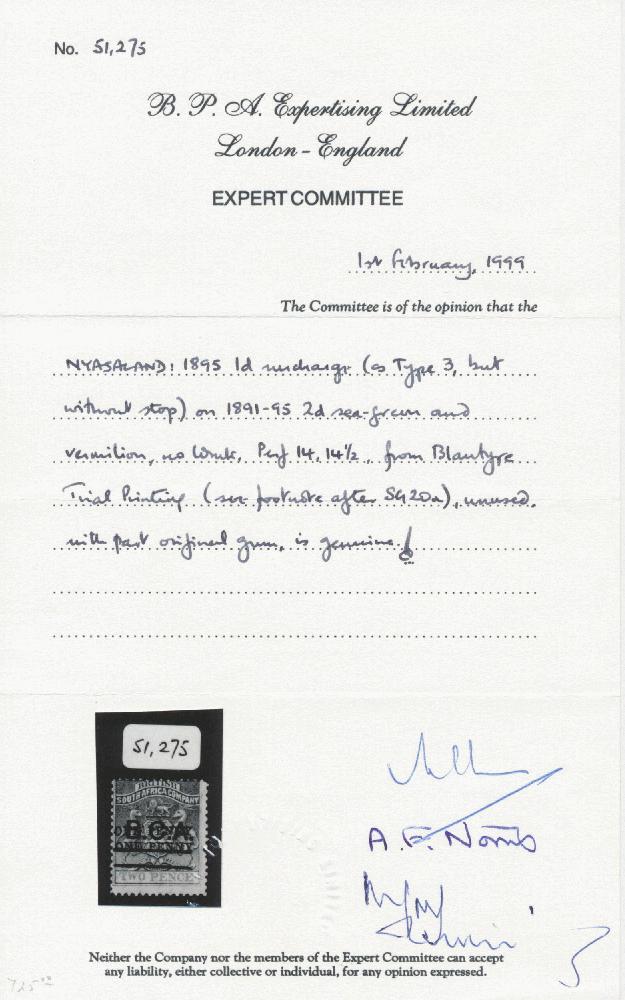 No. 51,275
B. P. A. Expertising Limited
London - England
EXPERT COMMITTEE
1st February, 1999
The Committee is of the opinion that the
NYASALAND: 1895 1d surcharge (as Type 3, but
without stop) on 1891-95 2d sea-green and
vermilion, no Wmk, Perf 14, 14½, from Blantyre
Trial Printing (see footnote after SG 20a), unused,
with part original gum, is genuine.
51,275
BRITISH
SOUTH AFRICA COMPANY
B.C.A.
ONE PENNY
TWO PENCE
A. F. Norris
Neither the Company nor the members of the Expert Committee can accept
any liability, either collective or individual, for any opinion expressed.